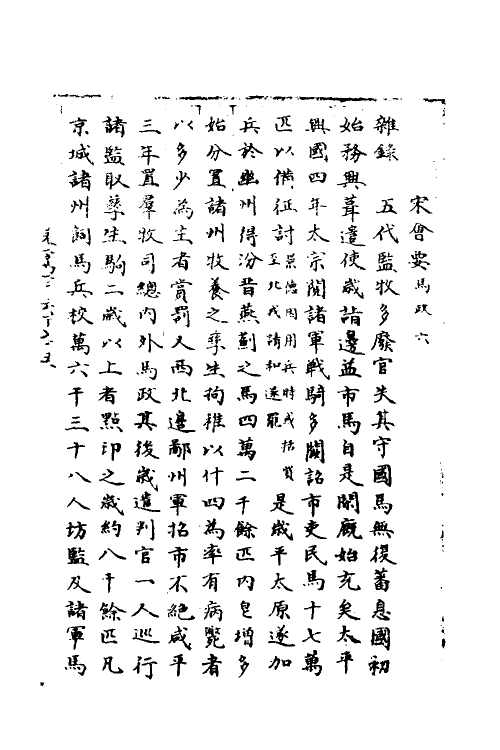 宋會要 馬政六
雜錄 五代監牧多廢官失其守國馬無復蕃息國初
始務興葺遣使歲詣邊益市馬自是閑廐始充矣太平
興國四年太宗閱諸軍戰騎多闕詔市吏民馬十七萬
匹以備征討景德因用兵時或括買至北戎請和遂罷是歲平太原遂加
兵於幽州得汾晉燕薊之馬四萬二千餘匹內皂增多
始分置諸州牧養之孳生拘種以什四為率有病斃者
以多少為主者賞罰又西北邊鄜州軍招市不絕咸平
三年置羣牧司總內外馬政其後歲遣判官一人巡行
諸監取孳生駒二歲以上者點印之歲約八千餘匹凡
京城諸州飼馬兵校萬六千三十八人坊監及諸軍馬